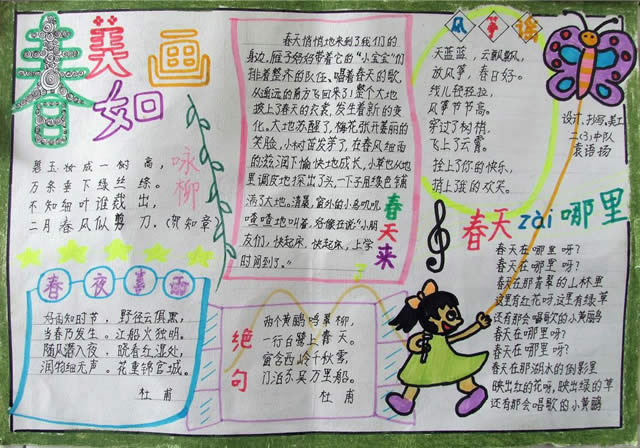 春美
如画
咏柳
碧玉妆成一树高,
万条垂下绿丝绦。
不知细叶谁裁出,
二月春风似剪刀。(贺知章)
春天悄悄地来到了我们的
身边,雁子妈妈带着它的“小宝宝”们
排着整齐的队伍、唱着春天的歌,
从遥远的南方飞回来了!整个大地
披上了春天的衣裳,发生着新的变
化。大地苏醒了,梅花张开美丽的
笑脸,小树苗发芽了,在春风细雨
的滋润下愉快地成长,小草也从地
里调皮地探出了头,一下子用绿色铺
满了大地。清晨,窗外的小鸟叽叽
喳喳地叫着,好像在说“小朋
友们,快起床、快起床,上学
时间到了。”
春天来
风筝谣
天蓝蓝,云飘飘,
放风筝,春日好。
线儿轻轻拉,
风筝节节高。
穿过了树梢,
飞上了云霄。
拴上了你的快乐,
捎上我的欢笑。
设计、抄写、美工
二(3)中队
袁语扬
春夜喜雨
好雨知时节,野径云俱黑,
当春乃发生。江船火独明。
随风潜入夜,晓看红湿处,
润物细无声。花重锦官城。
杜甫
绝句
两个黄鹂鸣翠柳,
一行白鹭上青天。
窗含西岭千秋雪,
门泊东吴万里船。
杜甫
春天zài哪里
春天在哪里呀?
春天在哪里呀?
春天在那青翠的山林里
这里有红花呀这里有绿草
还有那会唱歌的小黄鹂
春天在哪里呀?
春天在哪里呀?
春天在那湖水的倒影里
映出红的花呀,映出绿的草
还有那会唱歌的小黄鹂